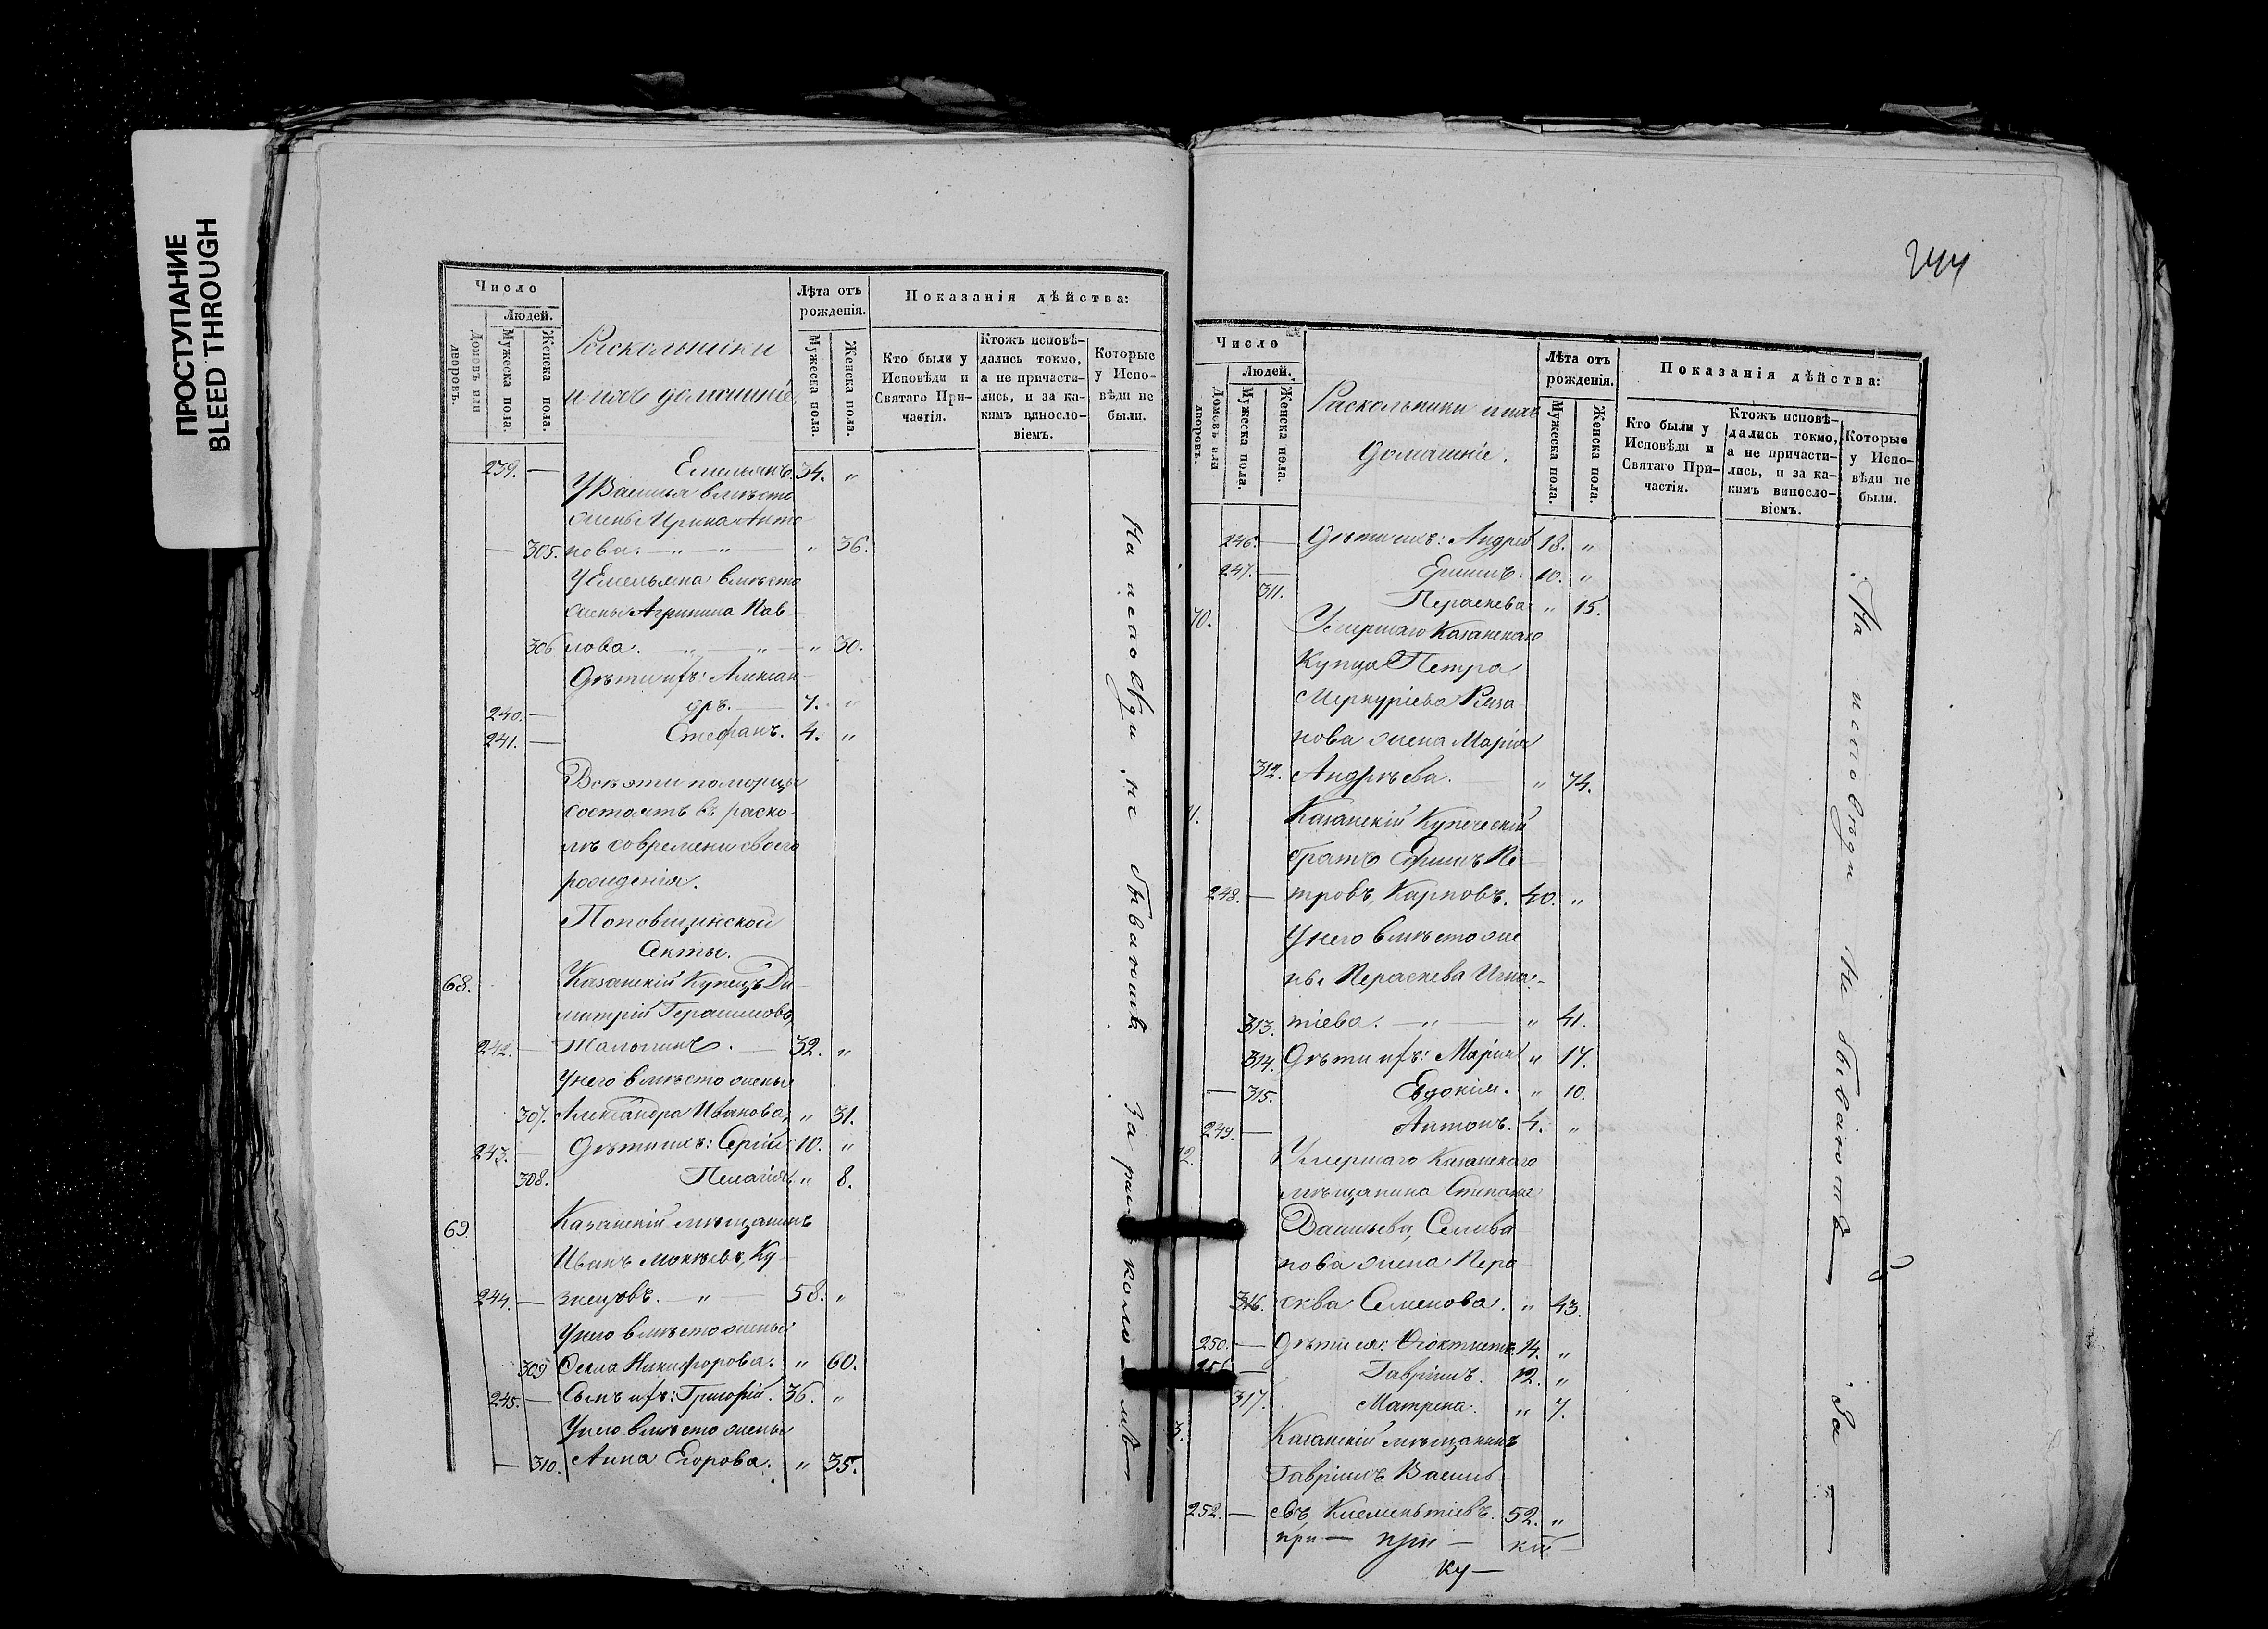 ПРОСТУПАНИЕ
BLEED THROUGH
Число
Людей.
Домовъ или дворовъ.
Мужеска пола.
Женска пола.
Раскольники
и ихъ домашніе
Лѣта отъ рожденія.
Мужеска пола.
Женска пола.
Показанія дѣйства:
Кто были у Исповѣди и Святаго Причастія.
Ктожъ исповѣдались токмо, а не причастились, и за какимъ винословіемъ.
Которые у Исповѣди не были.
239. — Емельянъ. 34. "
У Василья вмѣсто
жены Ирина Анто
— 305. нова. — " — " — " 36.
У Емельяна вмѣсто
жены Агрипина Пав
306 лова. — " — " — " 30.
Дѣти ихъ: Алексан-
240. — дръ. — 7. "
241. — Стефанъ. 4. "
Всѣ эти поморцы
состоятъ въ раско-
лѣ со времени своего
рожденія.
Поповщинской
Секты.
68. Казанскій Купецъ Ди-
митрій Герасимовъ,
242. — 32. "
У него вмѣсто жены
307. Александра Иванова, " 31.
243. — Дѣти ихъ: Сергій 10. "
308. Пелагія. " 8.
69. Казанскій мѣщанинъ
Иванъ Мокѣевъ, Ку-
244. — знецовъ. — " — 58. "
У него вмѣсто жены
309 Фекла Никифорова. " 60.
245. — Сынъ ихъ: Григорій. 36. "
У него вмѣсто жены
— 310. Анна Егорова. " 35.
На исповѣди не бываютъ За рас — коло — мъ —
244
Число
Людей.
Домовъ или дворовъ.
Мужеска пола.
Женска пола.
Раскольники и ихъ
домашніе.
Лѣта отъ рожденія.
Мужеска пола.
Женска пола.
Показанія дѣйства:
Кто были у Исповѣди и Святаго Причастія.
Ктожъ исповѣдались токмо, а не причастились, и за какимъ винословіемъ.
Которые у Исповѣди не были.
246. — Дѣти ихъ: Андрей 18. "
247. — 10. "
311. Параскева " 15.
70. Умершаго Казанскаго
Купца Петра
Меркуріева Ряза
нова жена Марія
312. Андрѣева. — " 74.
71. Казанскій Купеческій
братъ Ефимъ Пе-
248. — тровъ, Карповъ. 40. "
У него вмѣсто же
ны Параскева Игна-
313. тіева. — " — " 41.
314. Дѣти ихъ: Марія " 17.
— 315. Евдокія. " 10.
249. — Антонъ. 4. "
72. Умершаго Казанскаго
мѣщанина Степана
Васильева, Селива
нова жена Пара
316. сква Семенова. " 43.
250. — Дѣти ея: Феоктистъ 14. "
251. — Гавріилъ. 12. "
317. Матрена. " 7.
3. Казанскій мѣщанинъ
Гавріилъ Василь-
252. — евъ, Клементіевъ. 52. "
при — при — кій —
ку —
На исповѣди не бываютъ — За —